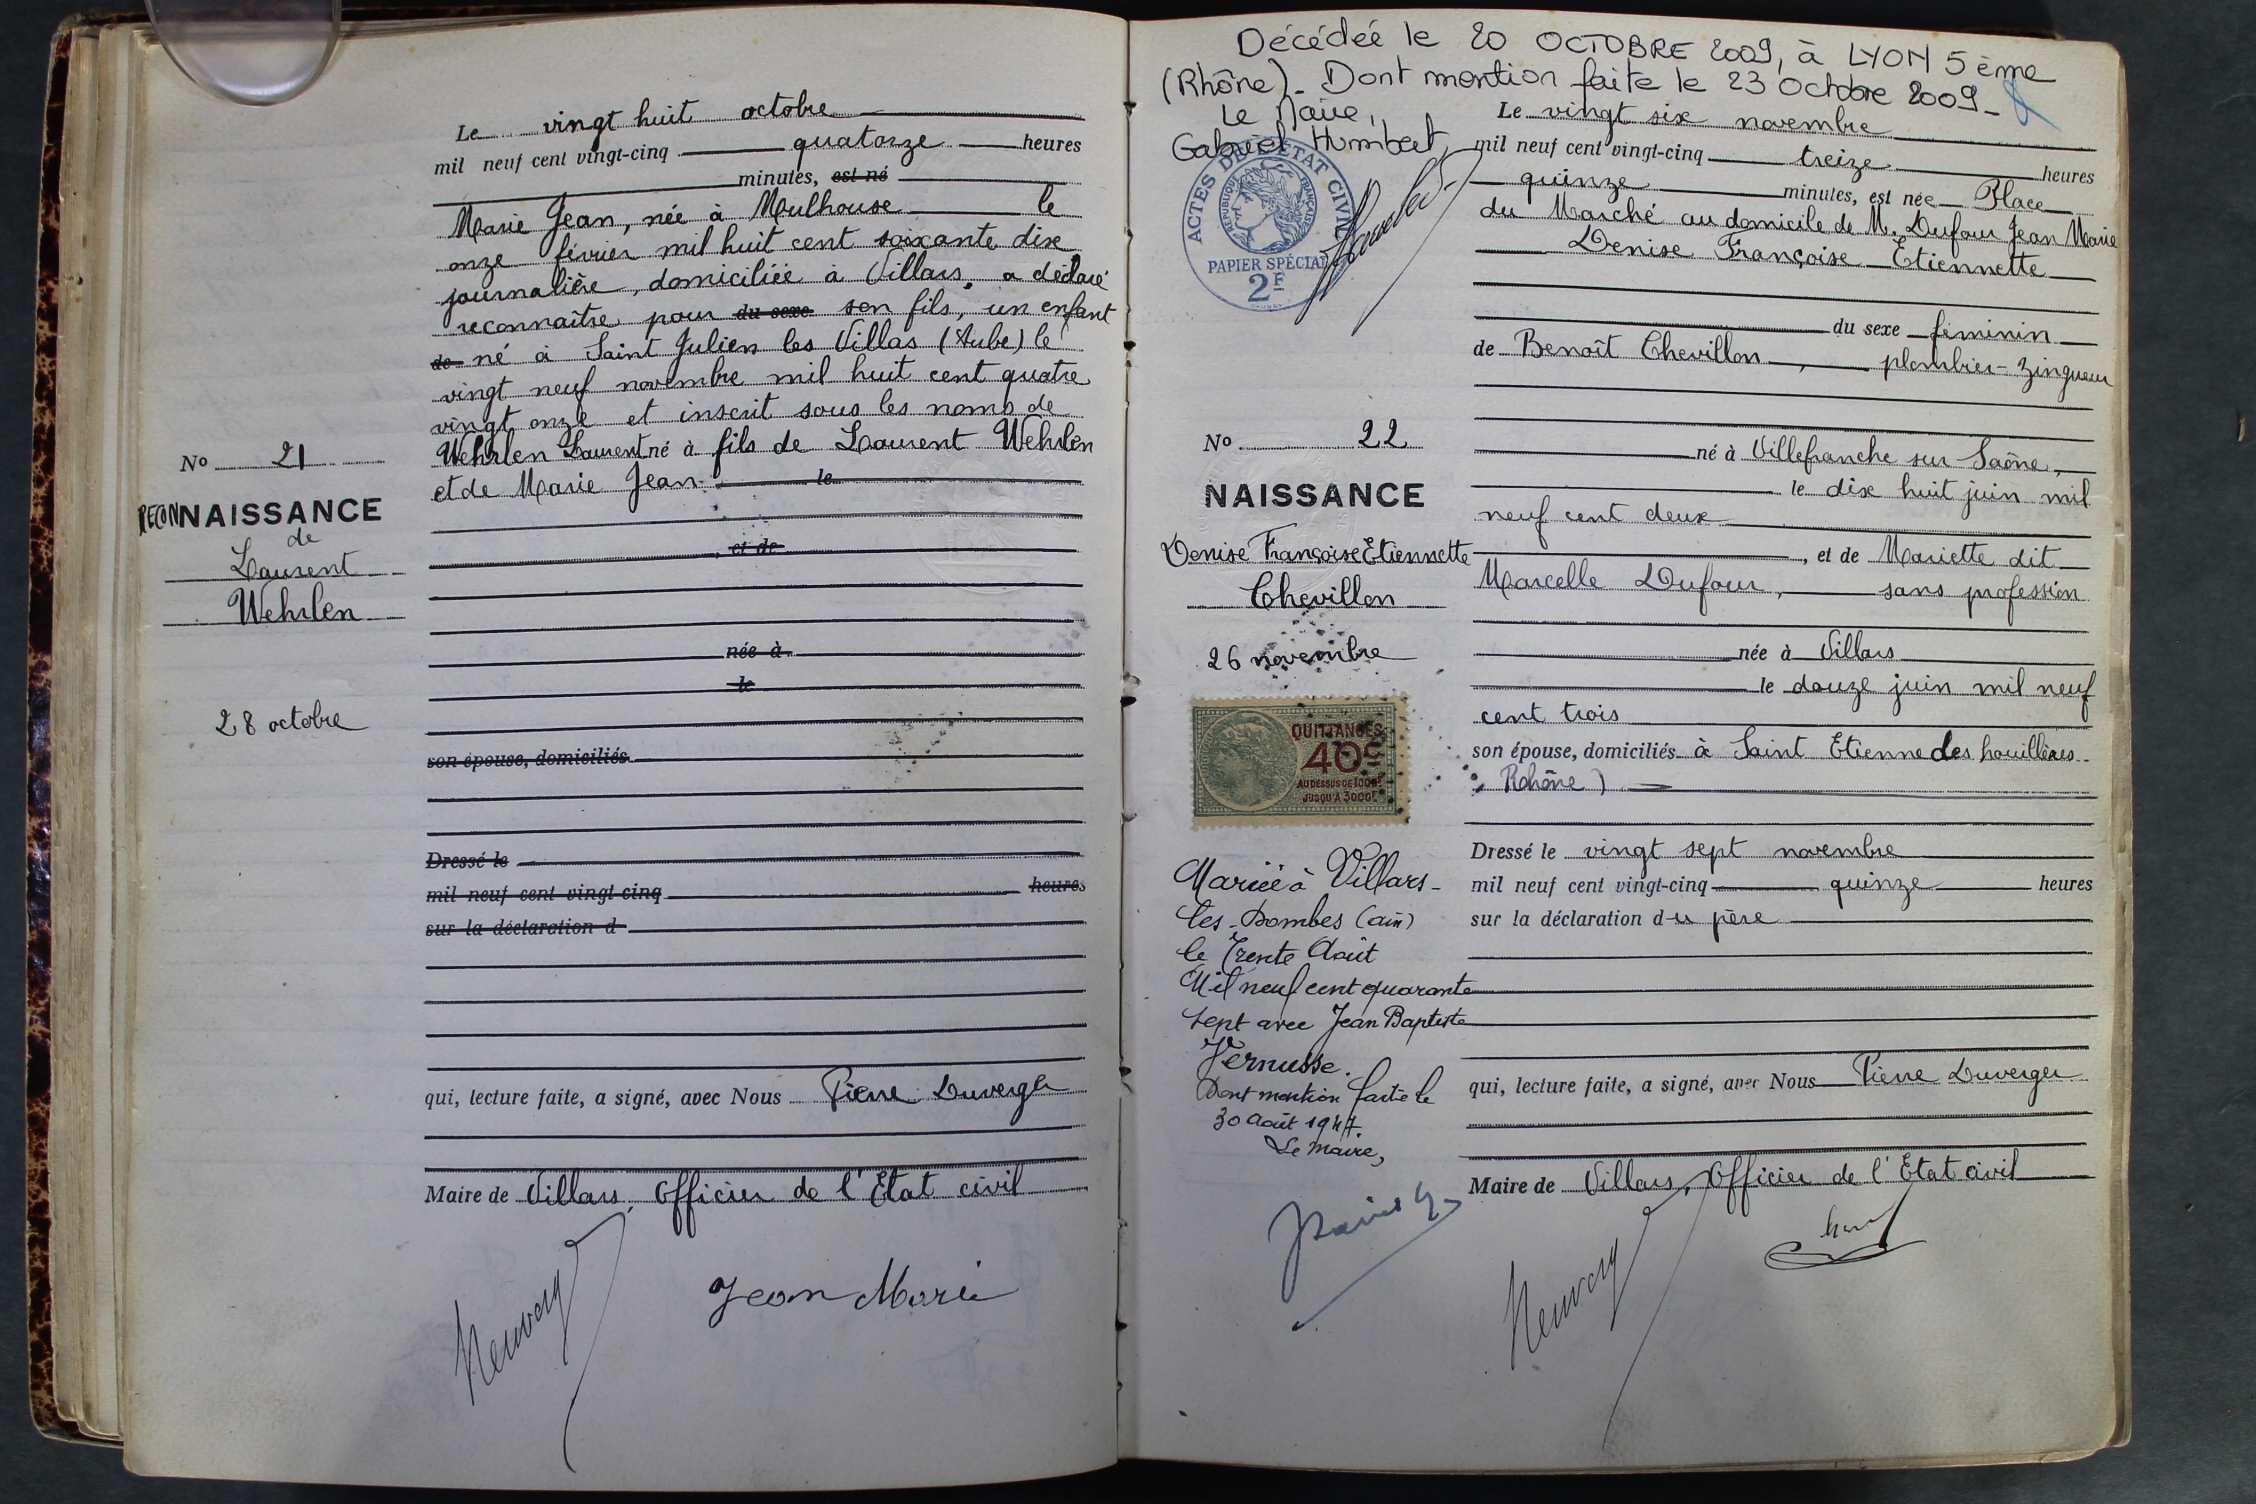 Le vingt huit octobre
mil neuf cent vingt-cinq quatorze heures
minutes, est né
Marie Jean, née à Mulhouse le
onze février mil huit cent soixante dix
journalière, domiciliée à Villars, a déclaré
reconnaître pour du sexe son fils, un enfant
de né à Saint Julien les Villas (Aube) le
vingt neuf novembre mil huit cent quatre
vingt onze et inscrit sous les noms de
Wehrlen Laurent né à fils de Laurent Wehrlen
et de Marie Jean. le
No 21
RECONNAISSANCE
de
Laurent
Wehrlen
28 octobre
, et de
née à
le
son épouse, domiciliés
Dressé le
mil neuf cent vingt-cinq heures
sur la déclaration d
qui, lecture faite, a signé, avec Nous Pierre Duverger
Maire de Villars, Officier de l'Etat civil
Jean Marie
Décédée le 20 OCTOBRE 2009, à LYON 5ème
(Rhône). Dont mention faite le 23 Octobre 2009
Le Maire,
Gabriel Humbert
ACTES DE L'ETAT CIVIL
REPUBLIQUE FRANÇAISE
PAPIER SPÉCIAL
2F
Le vingt six novembre
mil neuf cent vingt-cinq treize heures
quinze minutes, est née Place
du Marché au domicile de M. Dufour Jean Marie
Denise Françoise Etiennette
du sexe féminin
de Benoît Chevillon, plombier-zingueur
né à Villefranche sur Saône,
le dix huit juin mil
neuf cent deux
, et de Mariette dit
Marcelle Dufour, sans profession
née à Villars
le douze juin mil neuf
cent trois
son épouse, domiciliés à Saint Etienne des houillères
Rhône)
Dressé le vingt sept novembre
mil neuf cent vingt-cinq quinze heures
sur la déclaration du père
qui, lecture faite, a signé, avec Nous Pierre Duverger
Maire de Villars, Officier de l'Etat civil
No 22
NAISSANCE
Denise Françoise Etiennette
Chevillon
26 novembre
QUITTANCES
40c
AU DESSUS DE 1000F
JUSQU'A 3000F
Mariée à Villars-
les-Dombes (ain)
le Trente Août
Mil neuf cent quarante
sept avec Jean Baptiste
Vernusse.
Dont mention faite le
30 août 1947
Le Maire,